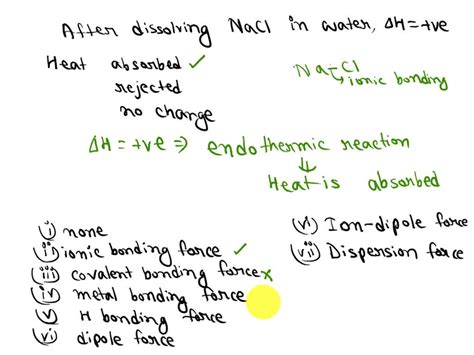 After dissolving NaCl in water, ΔH=+ve
Heat absorbed ✓
rejected
no change
Na-Cl
→ ionic bonding
ΔH=+ve ⇒ endothermic reaction
↓
Heat is absorbed
i) none
ii) ionic bonding force ✓
iii) covalent bonding force ×
iv) metal bonding force
v) H bonding force
vi) dipole force
(vi) Ion-dipole force
(vii) Dispersion force